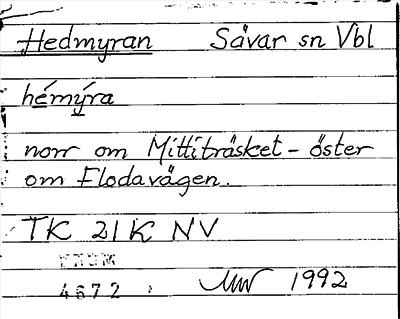 Hedmyran Sävar sn Vbl
hémýra
norr om Mittiträsket - öster
om Flodavägen.
TK 21K NV
4672 1992